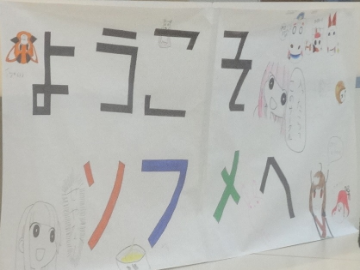 ようこそ
ソフメへ